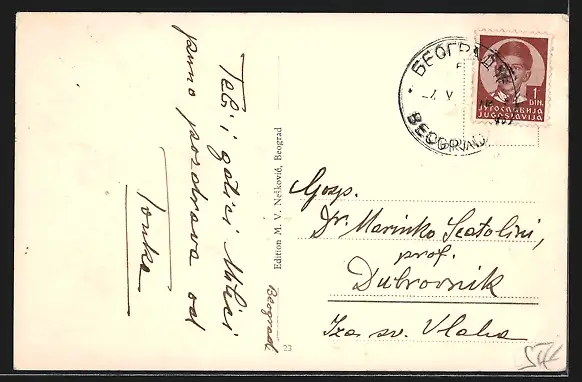 Tebi i gdici Milici
puno pozdrava od
Tonka
Edition M. V. Nešković, Beograd
Beograd
23
БЕОГРАД
BEOGRAD
V
1
DIN.
ЈУГОСЛАВИЈА
JUGOSLAVIJA
Gosp.
Dr. Marinko Scatolini,
prof.
Dubrovnik
Iza sv. Vlaha